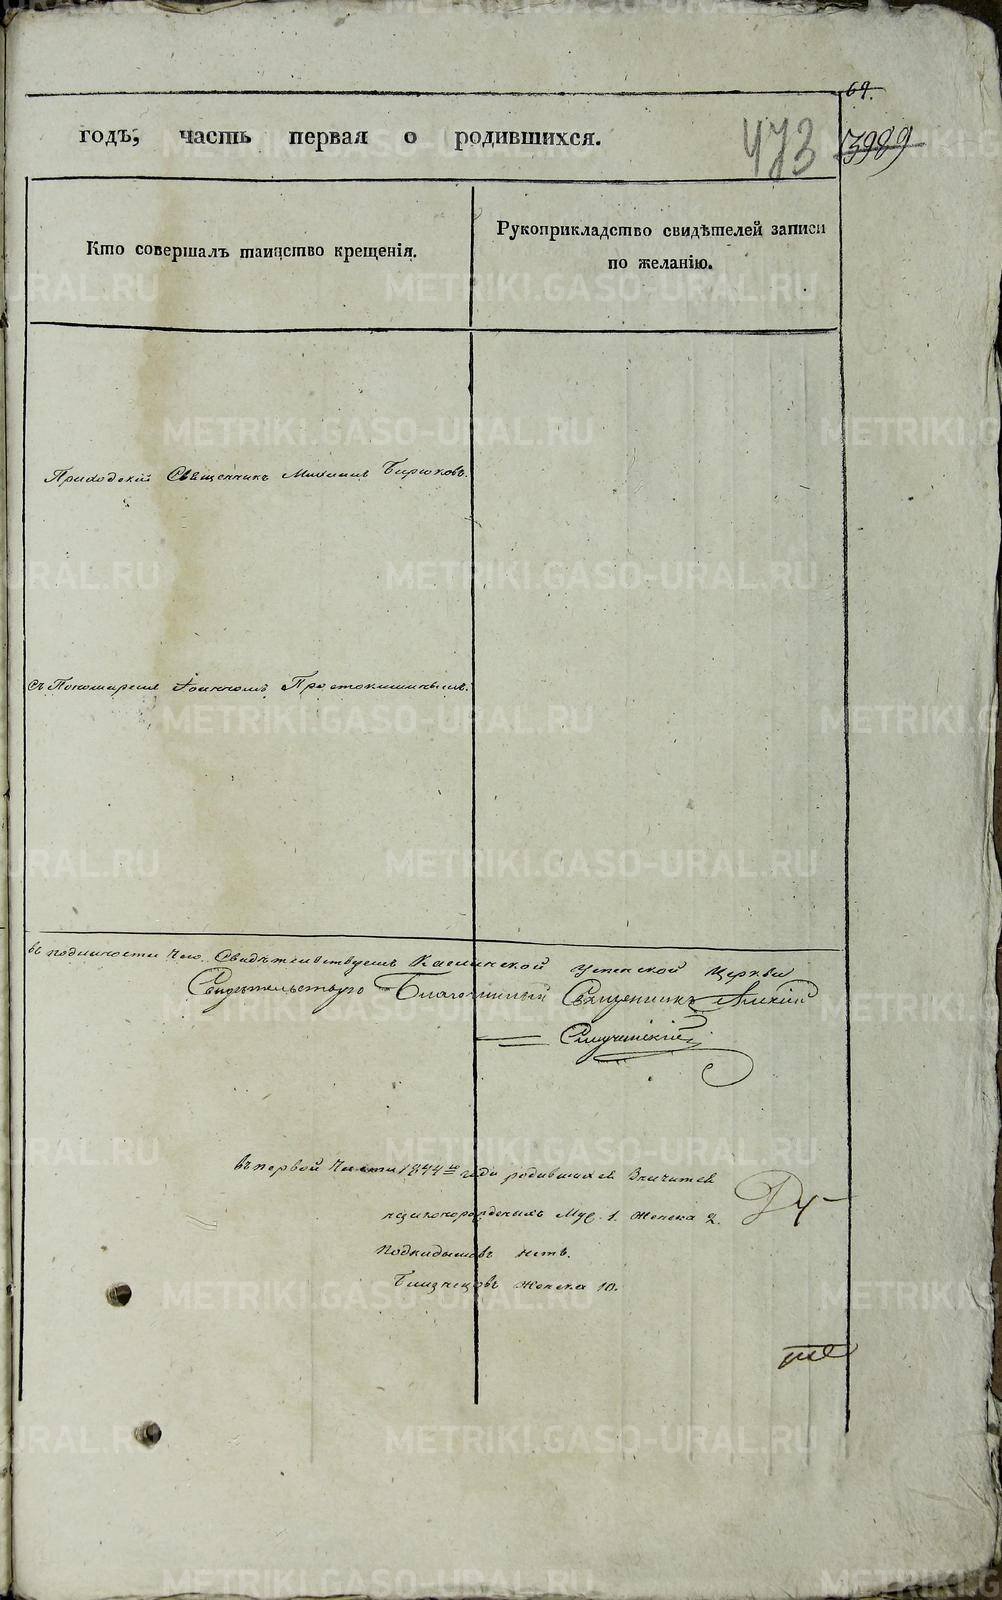 69.
годъ, часть первая о родившихся.
473
3989
Кто совершалъ таинство крещенія.
Рукоприкладство свидѣтелей записи
по желанію.
Приходскій Священникъ Михаилъ Бирюковъ.
съ Пономаремъ Іоанномъ
въ подлинности чего Свидѣтельствуемъ Каслинской Успенской Церкви
Свидѣтельствую Благочинный Священникъ Алексій
въ первой части 1844го года родившихся Значится
незаконорожденыхъ Муж. 1. Женска 2.
Подкидышовъ нетъ.
Близнецовъ Женска 10.
METRIKI.GASO-URAL.RU